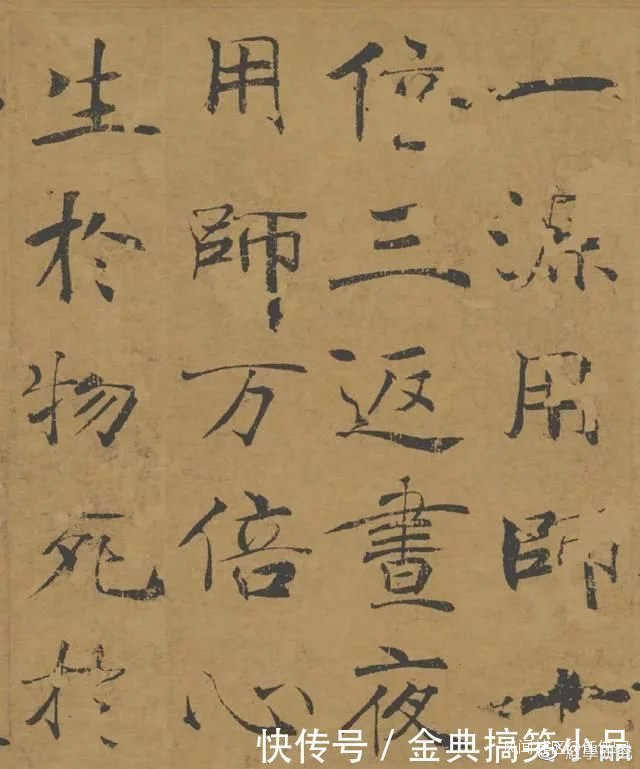 一源用師十
倍三返晝夜
用師万倍心
生於物死於
快传号 / 金典搞笑小品